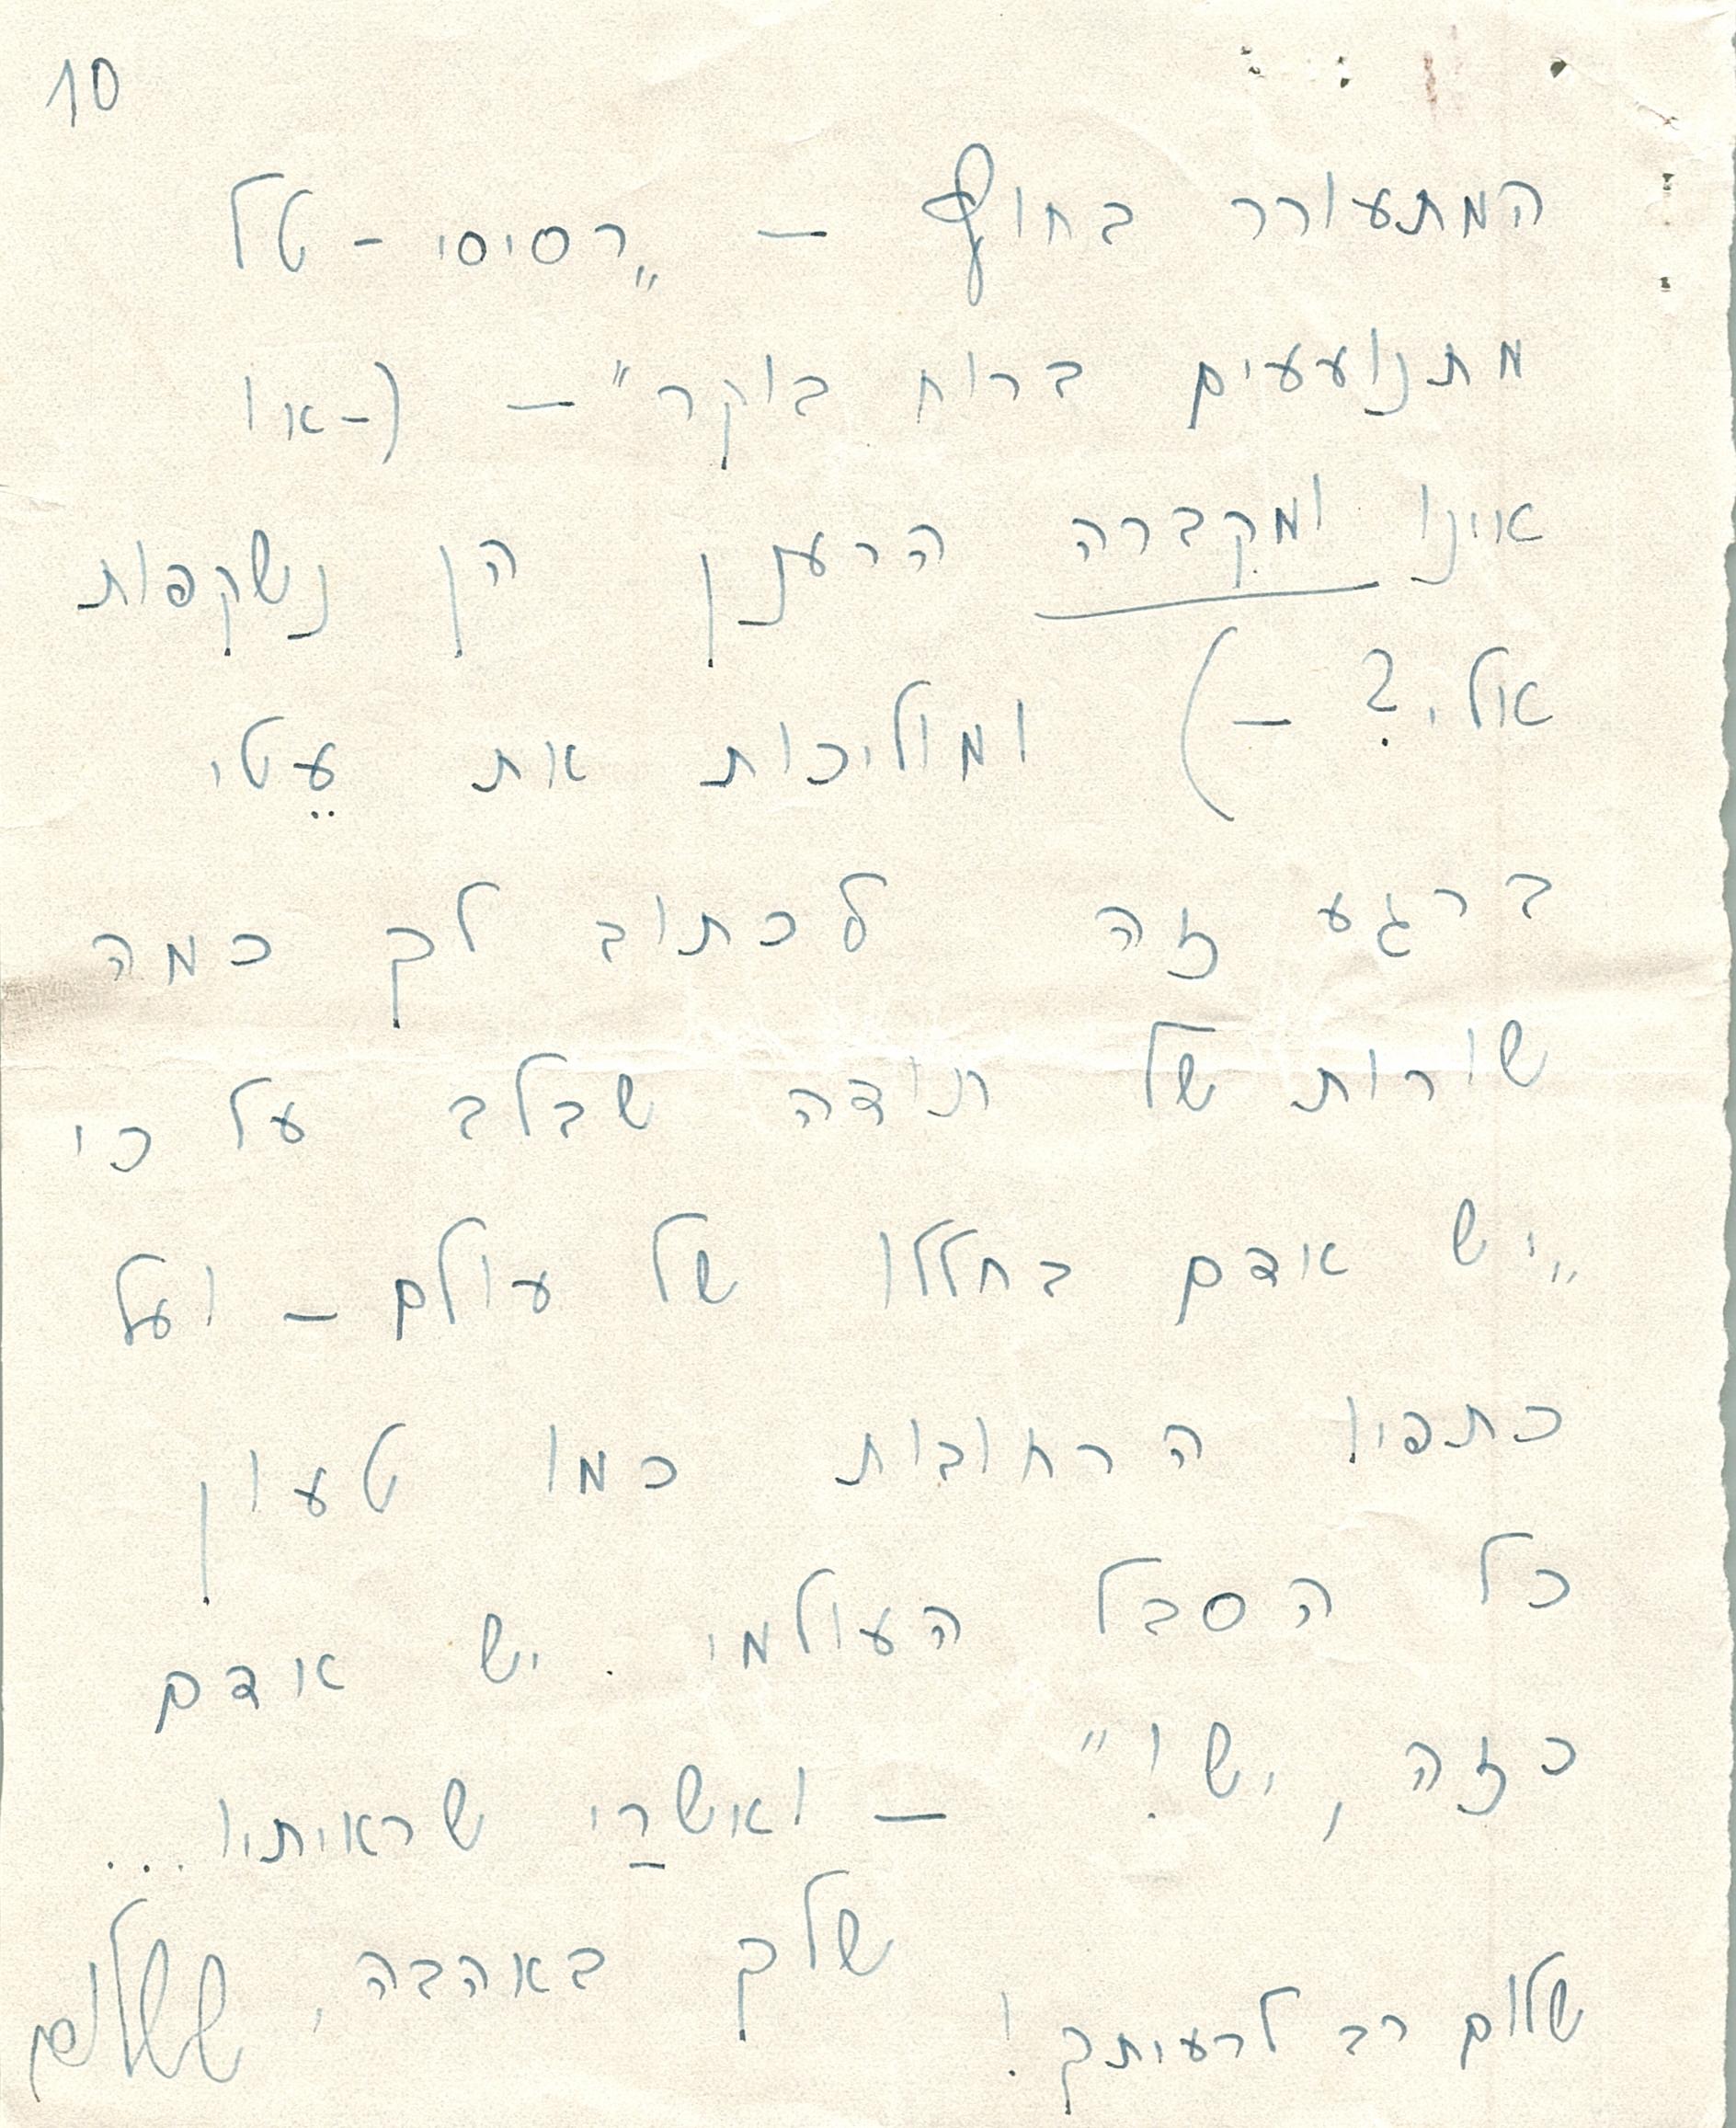 10
המתעורר בחוץ — „רסיסי-טל
מתנועעים ברוח בוקר" — (-או
אינו ומקברה הרענן הן נשקפות
אלי? —) ומוליכות את עֵטי
ברגע זה לכתוב לך כמה
שורות של תודה שבלב על כי
„יש אדם בחללו של עולם — ועל
כתפיו הרחובות כמו טעון
כל הסבל העולמי. יש אדם
כזה, יש!" — ואשרַי שראיתיו...
שלך באהבה,
שלום רב לרעיתך!